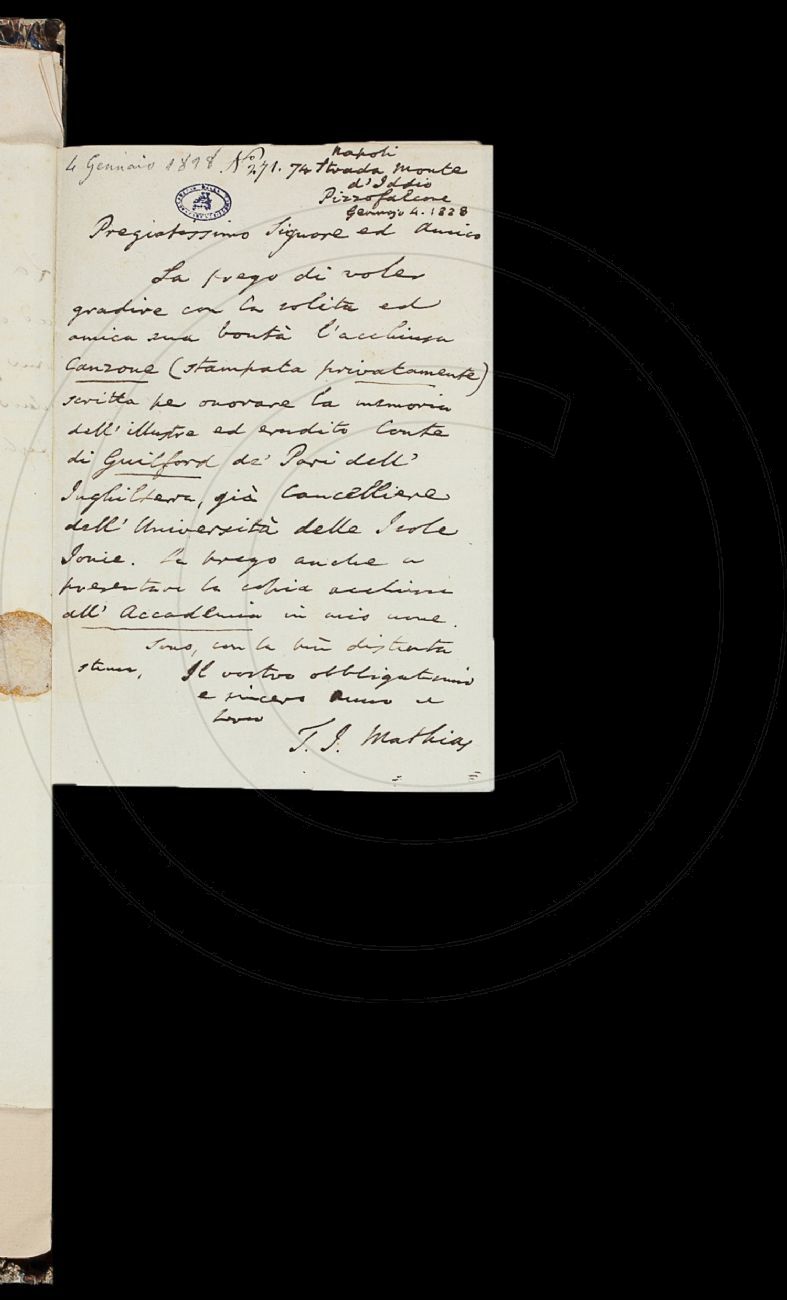 4 Gennaio 1828 Nº 271. 74 Strada Monte
Napoli
d'Iddio
Pizzofalcone
Gennajo 4. 1828
Pregiatissimo Signore ed Amico
La prego di voler
gradire con la solita ed
amica sua bontà l'acchiusa
Canzone (stampata privatamente)
scritta per onorare la memoria
dell' illustre ed erudito Conte
di Guilford de' Pari dell'
Inghilterra, già Cancelliere
dell' Università delle Isole
Jonie. La prego anche a
presentare la copia acchiusa
all' Accademia in mio nome.
Sono, con la più distinta
stima, Il vostro obbligatissimo
e sincero
T. J. Mathias